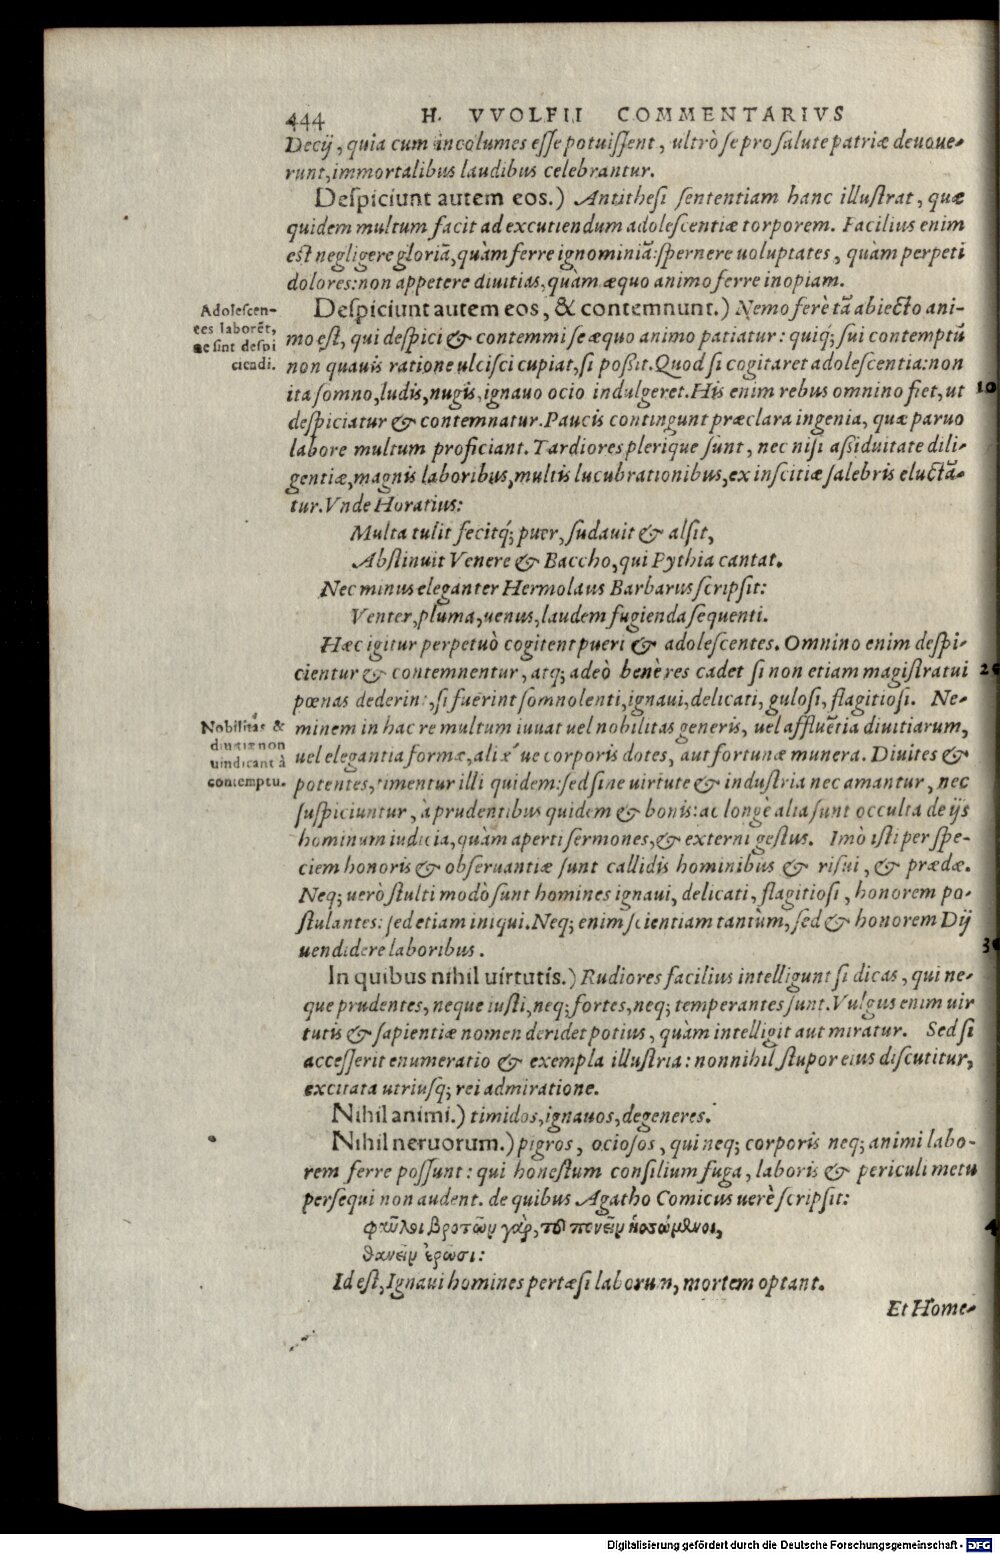 444 H. VVOLFII COMMENTARIVS
Decij, quia cum incolumes eſſe potuiſſent, ultrò ſe pro ſalute patriæ deuoue-
runt, immortalibus laudibus celebrantur.
Deſpiciunt autem eos.) Antitheſi ſententiam hanc illuſtrat, quæ
quidem multum facit ad excutiendum adoleſcentiæ torporem. Facilius enim
eſt negligere gloriã, quàm ferre ignominiã: ſpernere uoluptates, quàm perpeti
dolores: non appetere diuitias, quàm æquo animo ferre inopiam.
Adoleſcen-
tes laborẽt,
ne ſint deſpi
ciendi.
Deſpiciunt autem eos, & contemnunt.) Nemo ferè tã abiecto ani-
mo eſt, qui deſpici & contemmi ſe æquo animo patiatur: quiq́; ſui contemptũ
non quauis ratione ulciſci cupiat, ſi poßit. Quod ſi cogitaret adoleſcentia: non
ita ſomno, ludis, nugis, ignauo ocio indulgeret. His enim rebus omnino fiet, ut 10
deſpiciatur & contemnatur. Paucis contingunt præclara ingenia, quæ paruo
labore multum proficiant. Tardiores plerique ſunt, nec niſi aßiduitate dili-
gentiæ, magnis laboribus, multis lucubrationibus, ex inſcitiæ ſalebris eluctã-
tur. Vnde Horatius:
Multa tulit fecitq́; puer, ſudauit & alſit,
Abſtinuit Venere & Baccho, qui Pythia cantat.
Nec minus eleganter Hermolaus Barbarus ſcripſit:
Venter, pluma, uenus, laudem fugienda ſequenti.
Hæc igitur perpetuò cogitent pueri & adoleſcentes. Omnino enim deſpi-
cientur & contemnentur, atq; adeò benè res cadet ſi non etiam magiſtratui 20
pœnas dederint, ſi fuerint ſomnolenti, ignaui, delicati, guloſi, flagitioſi. Ne-
Nobilitas &
diuitiæ non
uindicant à
contemptu.
minem in hac re multum iuuat uel nobilitas generis, uel affluẽtia diuitiarum,
uel elegantia formæ, aliæ ue corporis dotes, aut fortunæ munera. Diuites &
potentes, timentur illi quidem: ſed ſine uirtute & induſtria nec amantur, nec
ſuſpiciuntur, à prudentibus quidem & bonis: ac longè alia ſunt occulta de ijs
hominum iudicia, quàm aperti ſermones, & externi geſtus. Imò iſti per ſpe-
ciem honoris & obſeruantiæ ſunt callidis hominibus & riſui, & prædæ.
Neq; uerò ſtulti modò ſunt homines ignaui, delicati, flagitioſi, honorem po-
ſtulantes: ſed etiam iniqui. Neq; enim ſcientiam tantùm, ſed & honorem Dij
uendidere laboribus. 30
In quibus nihil uirtutis.) Rudiores facilius intelligunt ſi dicas, qui ne-
que prudentes, neque iuſti, neq; fortes, neq; temperantes ſunt. Vulgus enim uir
tutis & ſapientiæ nomen deridet potius, quàm intelligit aut miratur. Sed ſi
acceſſerit enumeratio & exempla illuſtria: nonnihil ſtupor eius diſcutitur,
excitata utriuſq; rei admiratione.
Nihil animi.) timidos, ignauos, degeneres.
Nihil neruorum.) pigros, ocioſos, qui neq; corporis neq; animi labo-
rem ferre poſſunt: qui honeſtum conſilium fuga, laboris & periculi metu
perſequi non audent. de quibus Agatho Comicus uerè ſcripſit:
φαῦλοι βροτῶν γὰρ, τοῦ πονεῖν ἡσσώμενοι, 4
θανεῖν ἐρῶσι:
Id eſt, Ignaui homines pertæſi laborum, mortem optant.
Et Home-
Digitalisierung gefördert durch die Deutsche Forschungsgemeinschaft - DFG